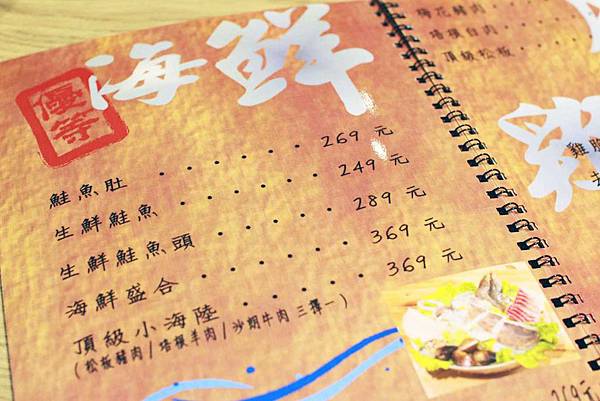 優等
海鮮
鮭魚肚 ‧‧‧‧‧‧ 269 元
生鮮鮭魚 ‧‧‧‧‧‧ 249 元
生鮮鮭魚頭 ‧‧‧‧‧ 289 元
海鮮盛合 ‧‧‧‧‧‧ 369 元
頂級小海陸 ‧‧‧‧‧ 369 元
(松板豬肉/培根羊肉/沙朗牛肉 三擇一)
梅花豬肉
培根白肉
頂級松板
雞
269元